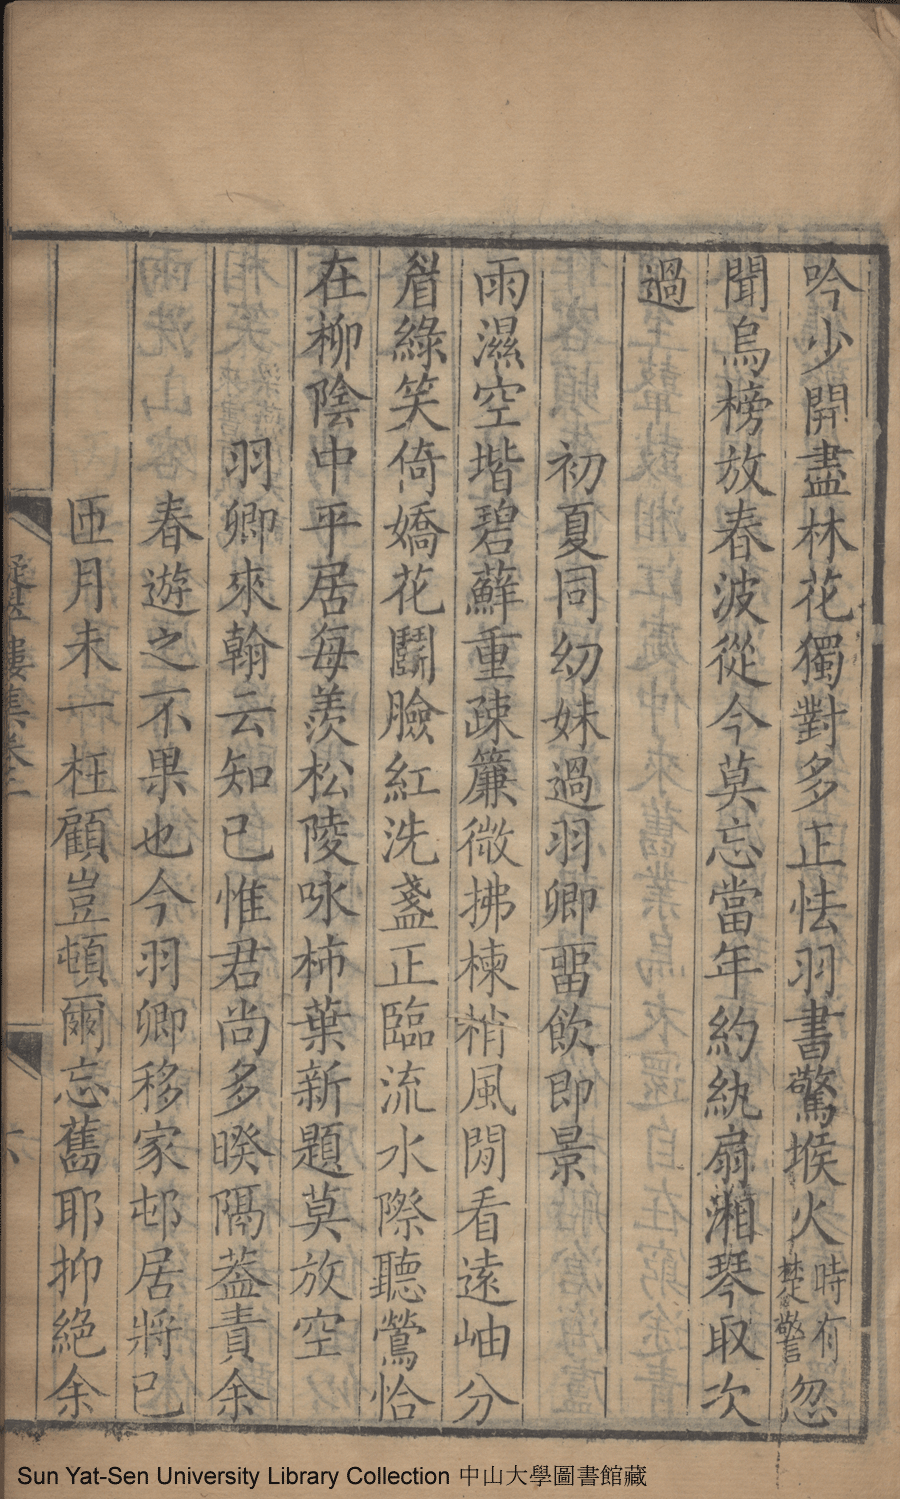 吟少開盡林花獨對多正怯羽書驚堠火時有楚警忽
聞烏榜放春波從今莫忘當年約紈扇湘琴取次
過
初夏同幼妹過羽卿畱飲即景
雨濕空堦碧蘚重疎簾微拂楝梢風閒看遠岫分
眉綠笑倚嬌花鬪臉紅洗盞正臨流水際聽鶯恰
在柳陰中平居每羨松陵咏柿葉新題莫放空
羽卿來翰云知已惟君尚多暌隔葢責余
春遊之不果也今羽卿移家邨居將已
匝月未一枉顧豈頓爾忘舊耶抑絕余
樓集卷二
六
Sun Yat-Sen University Library Collection 中山大學圖書館藏